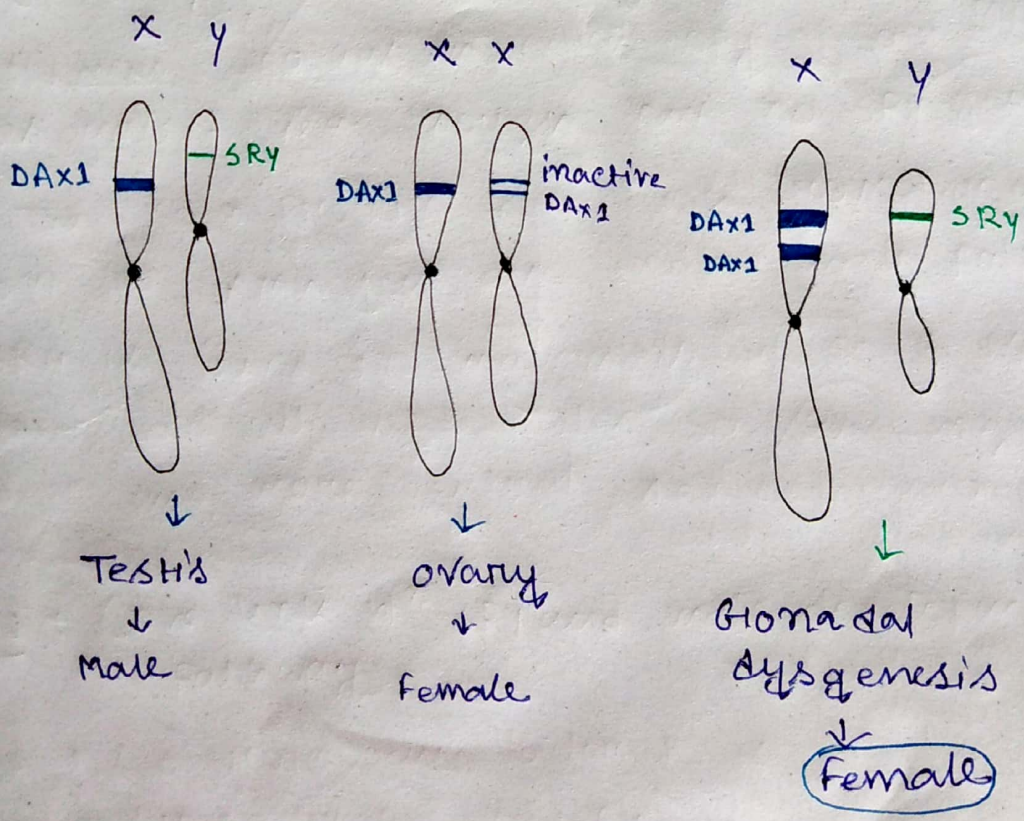 X Y
DAX1
SRY
↓
Testis
↓
Male
X X
DAX1
inactive
DAX1
↓
Ovary
↓
Female
X Y
DAX1
DAX1
SRY
↓
Gonadal
dysgenesis
↓
Female